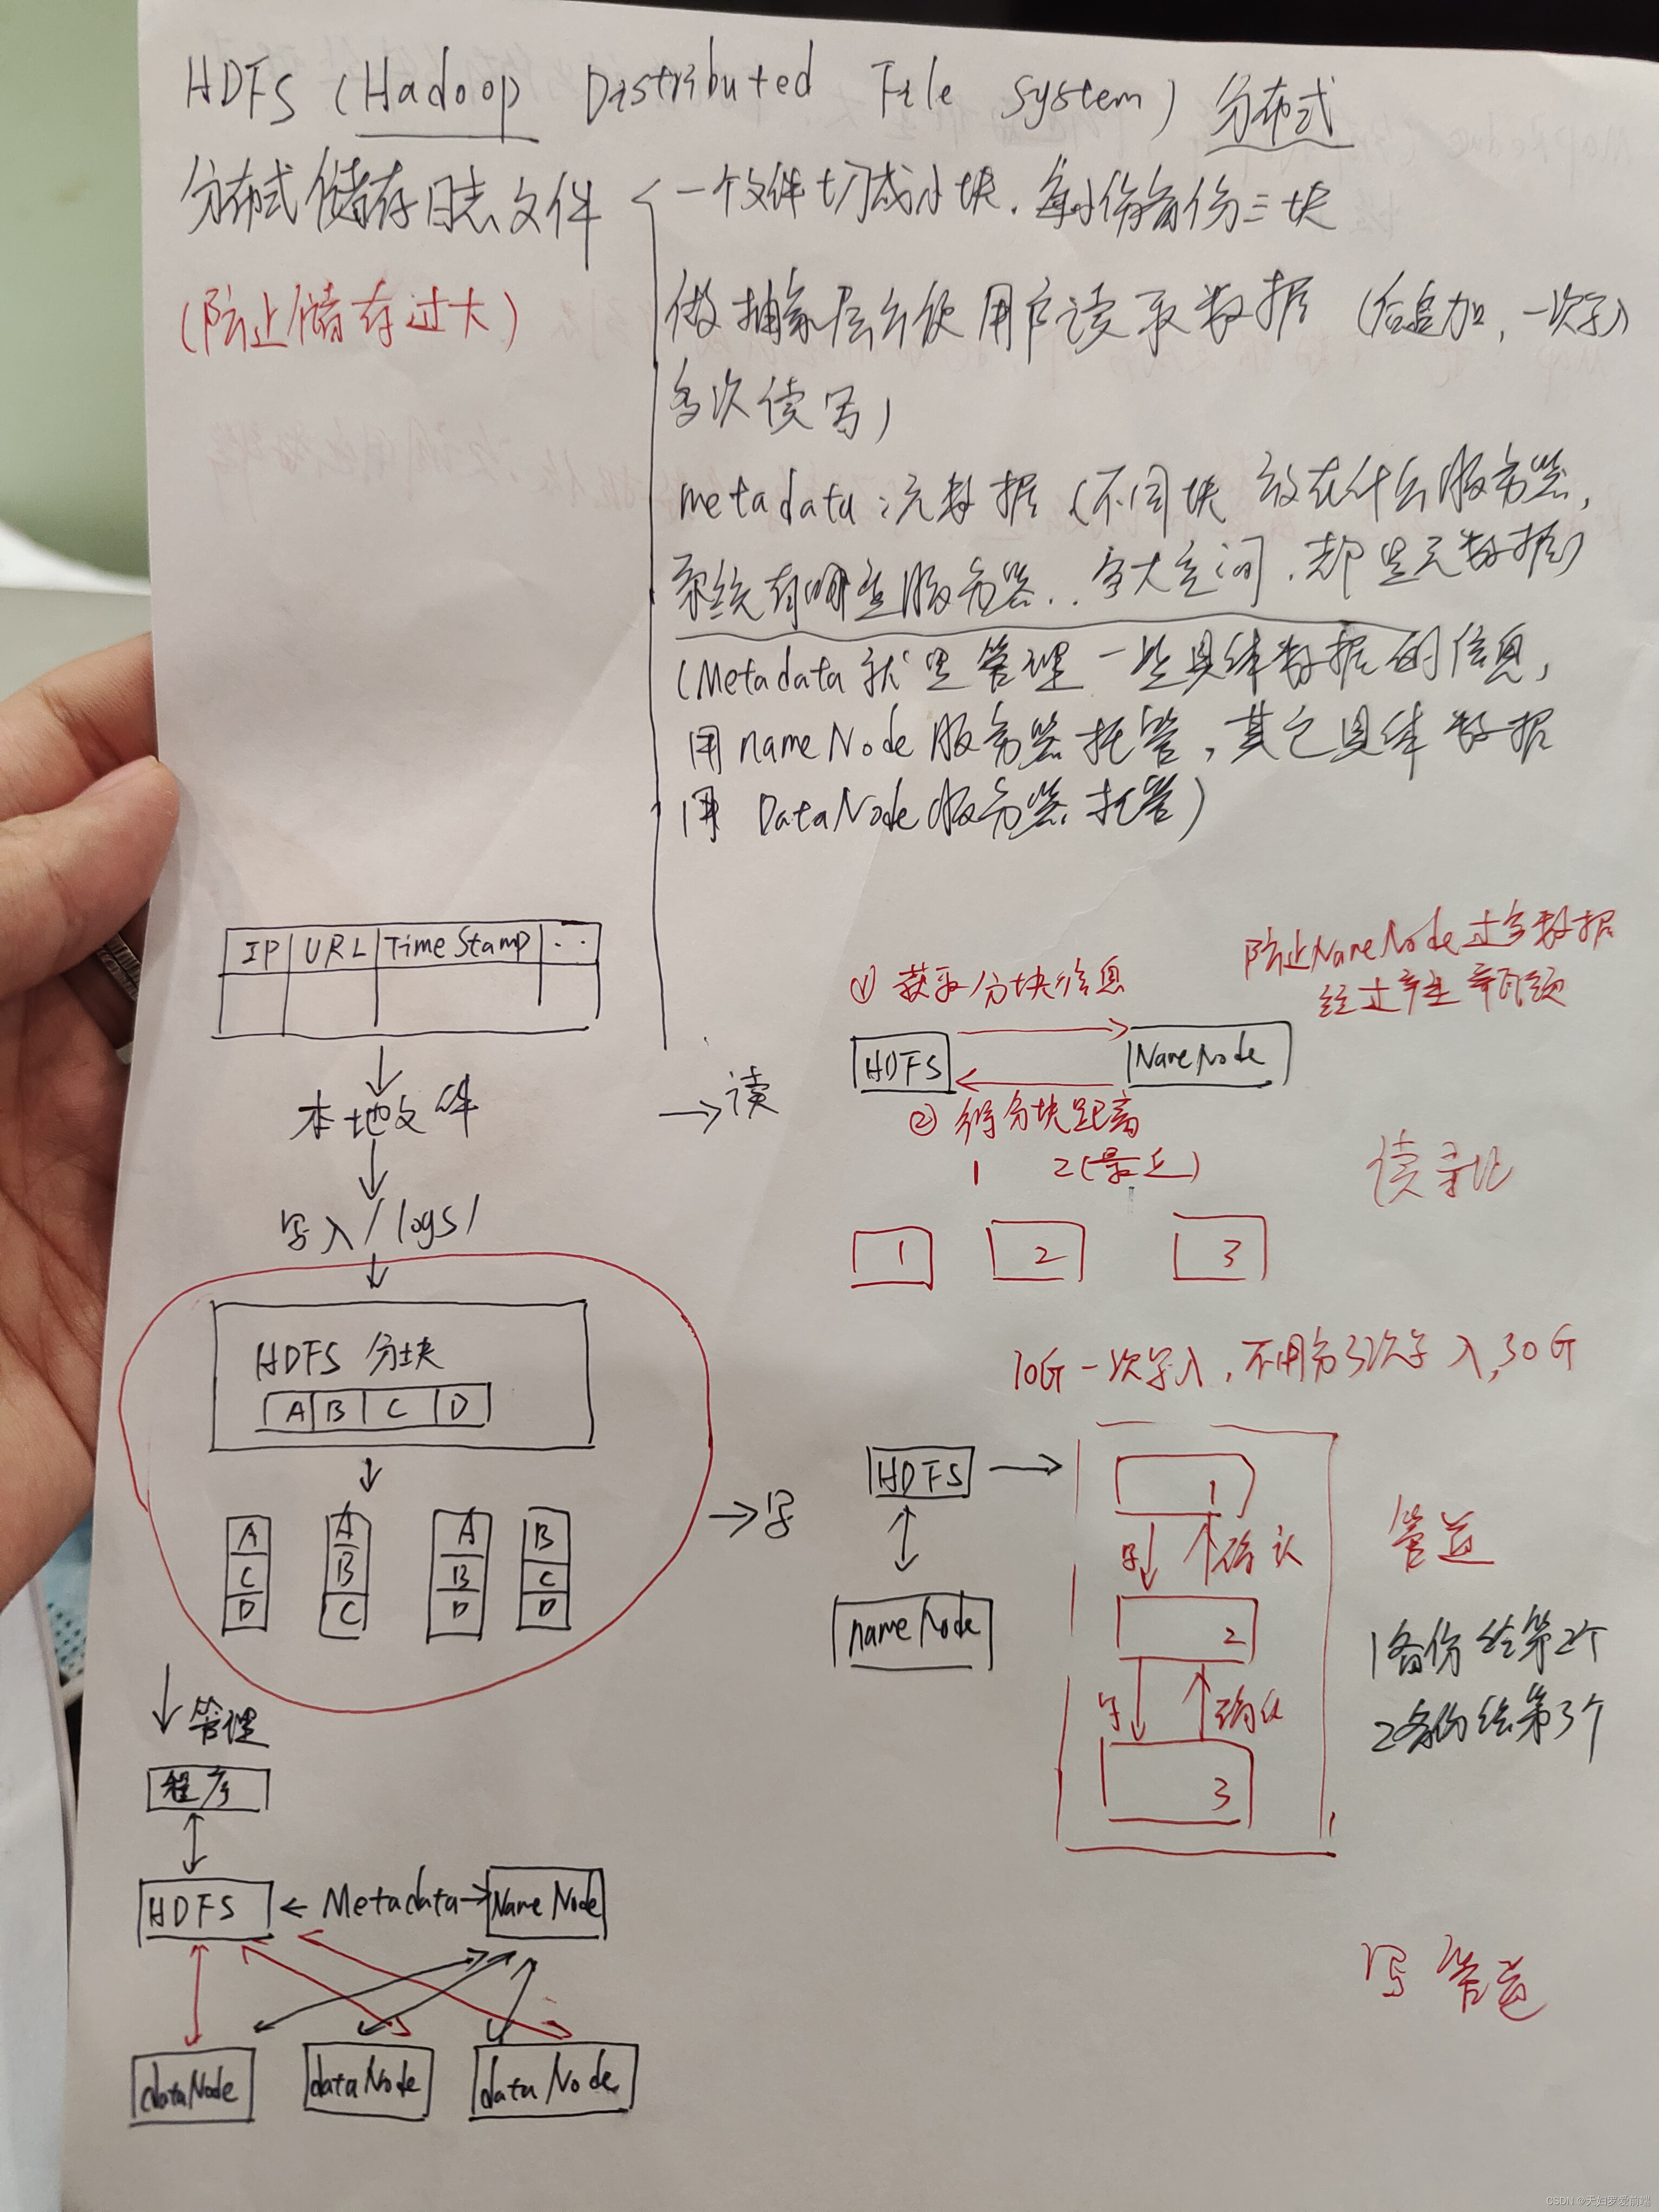 HDFS (Hadoop Distributed File System) 分布式
分布式储存日志文件
(防止储存过大)
一个文件切成小块,每小份备份三块
做抽象层方便用户读取数据 (信息加,一次写入
多次读写)
metadata:元数据(不同块放在什么服务器,
系统有哪些服务器..多大空间,都是元数据)
(Metadata就是管理一些具体数据的信息,
用nameNode服务器托管,其它具体数据
用DataNode服务器托管)
IP URL TimeStamp ..
本地文件
写入/logs/
HDFS 分块
A B C D
A A A B
C B B C
D C D D
管理
程序
HDFS Metadata NameNode
dataNode dataNode dataNode
→读
防止NameNode过多数据
经过产生瓶颈
① 获取分块信息
HDFS NameNode
② 得分块距离
1 2(最近)
读
1 2 3
10G一次写入,不用分3次写入,30G
→写
HDFS
nameNode
1
写 确认
2
写 确认
3
管道
1备份给第2个
2备份给第3个
写管道
CSDN @夫妇罗爱前端